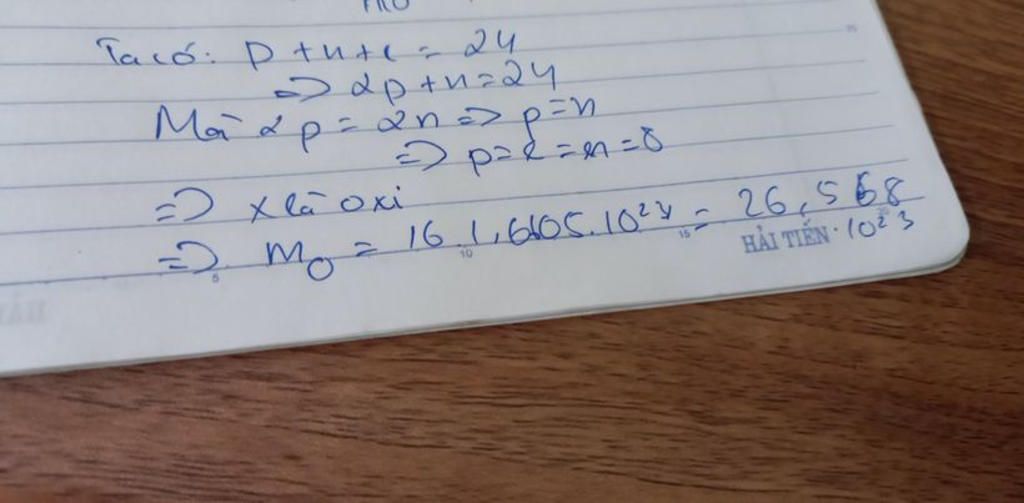 Ta có: p + n + e = 24
=> 2p + n = 24
Mà 2p = 2n => p = n
=> p = e = n = 8
=> X là oxi
=> mO = 16.1,6605.10^23 = 26,568.10^23
HẢI TIẾN
5 10 15